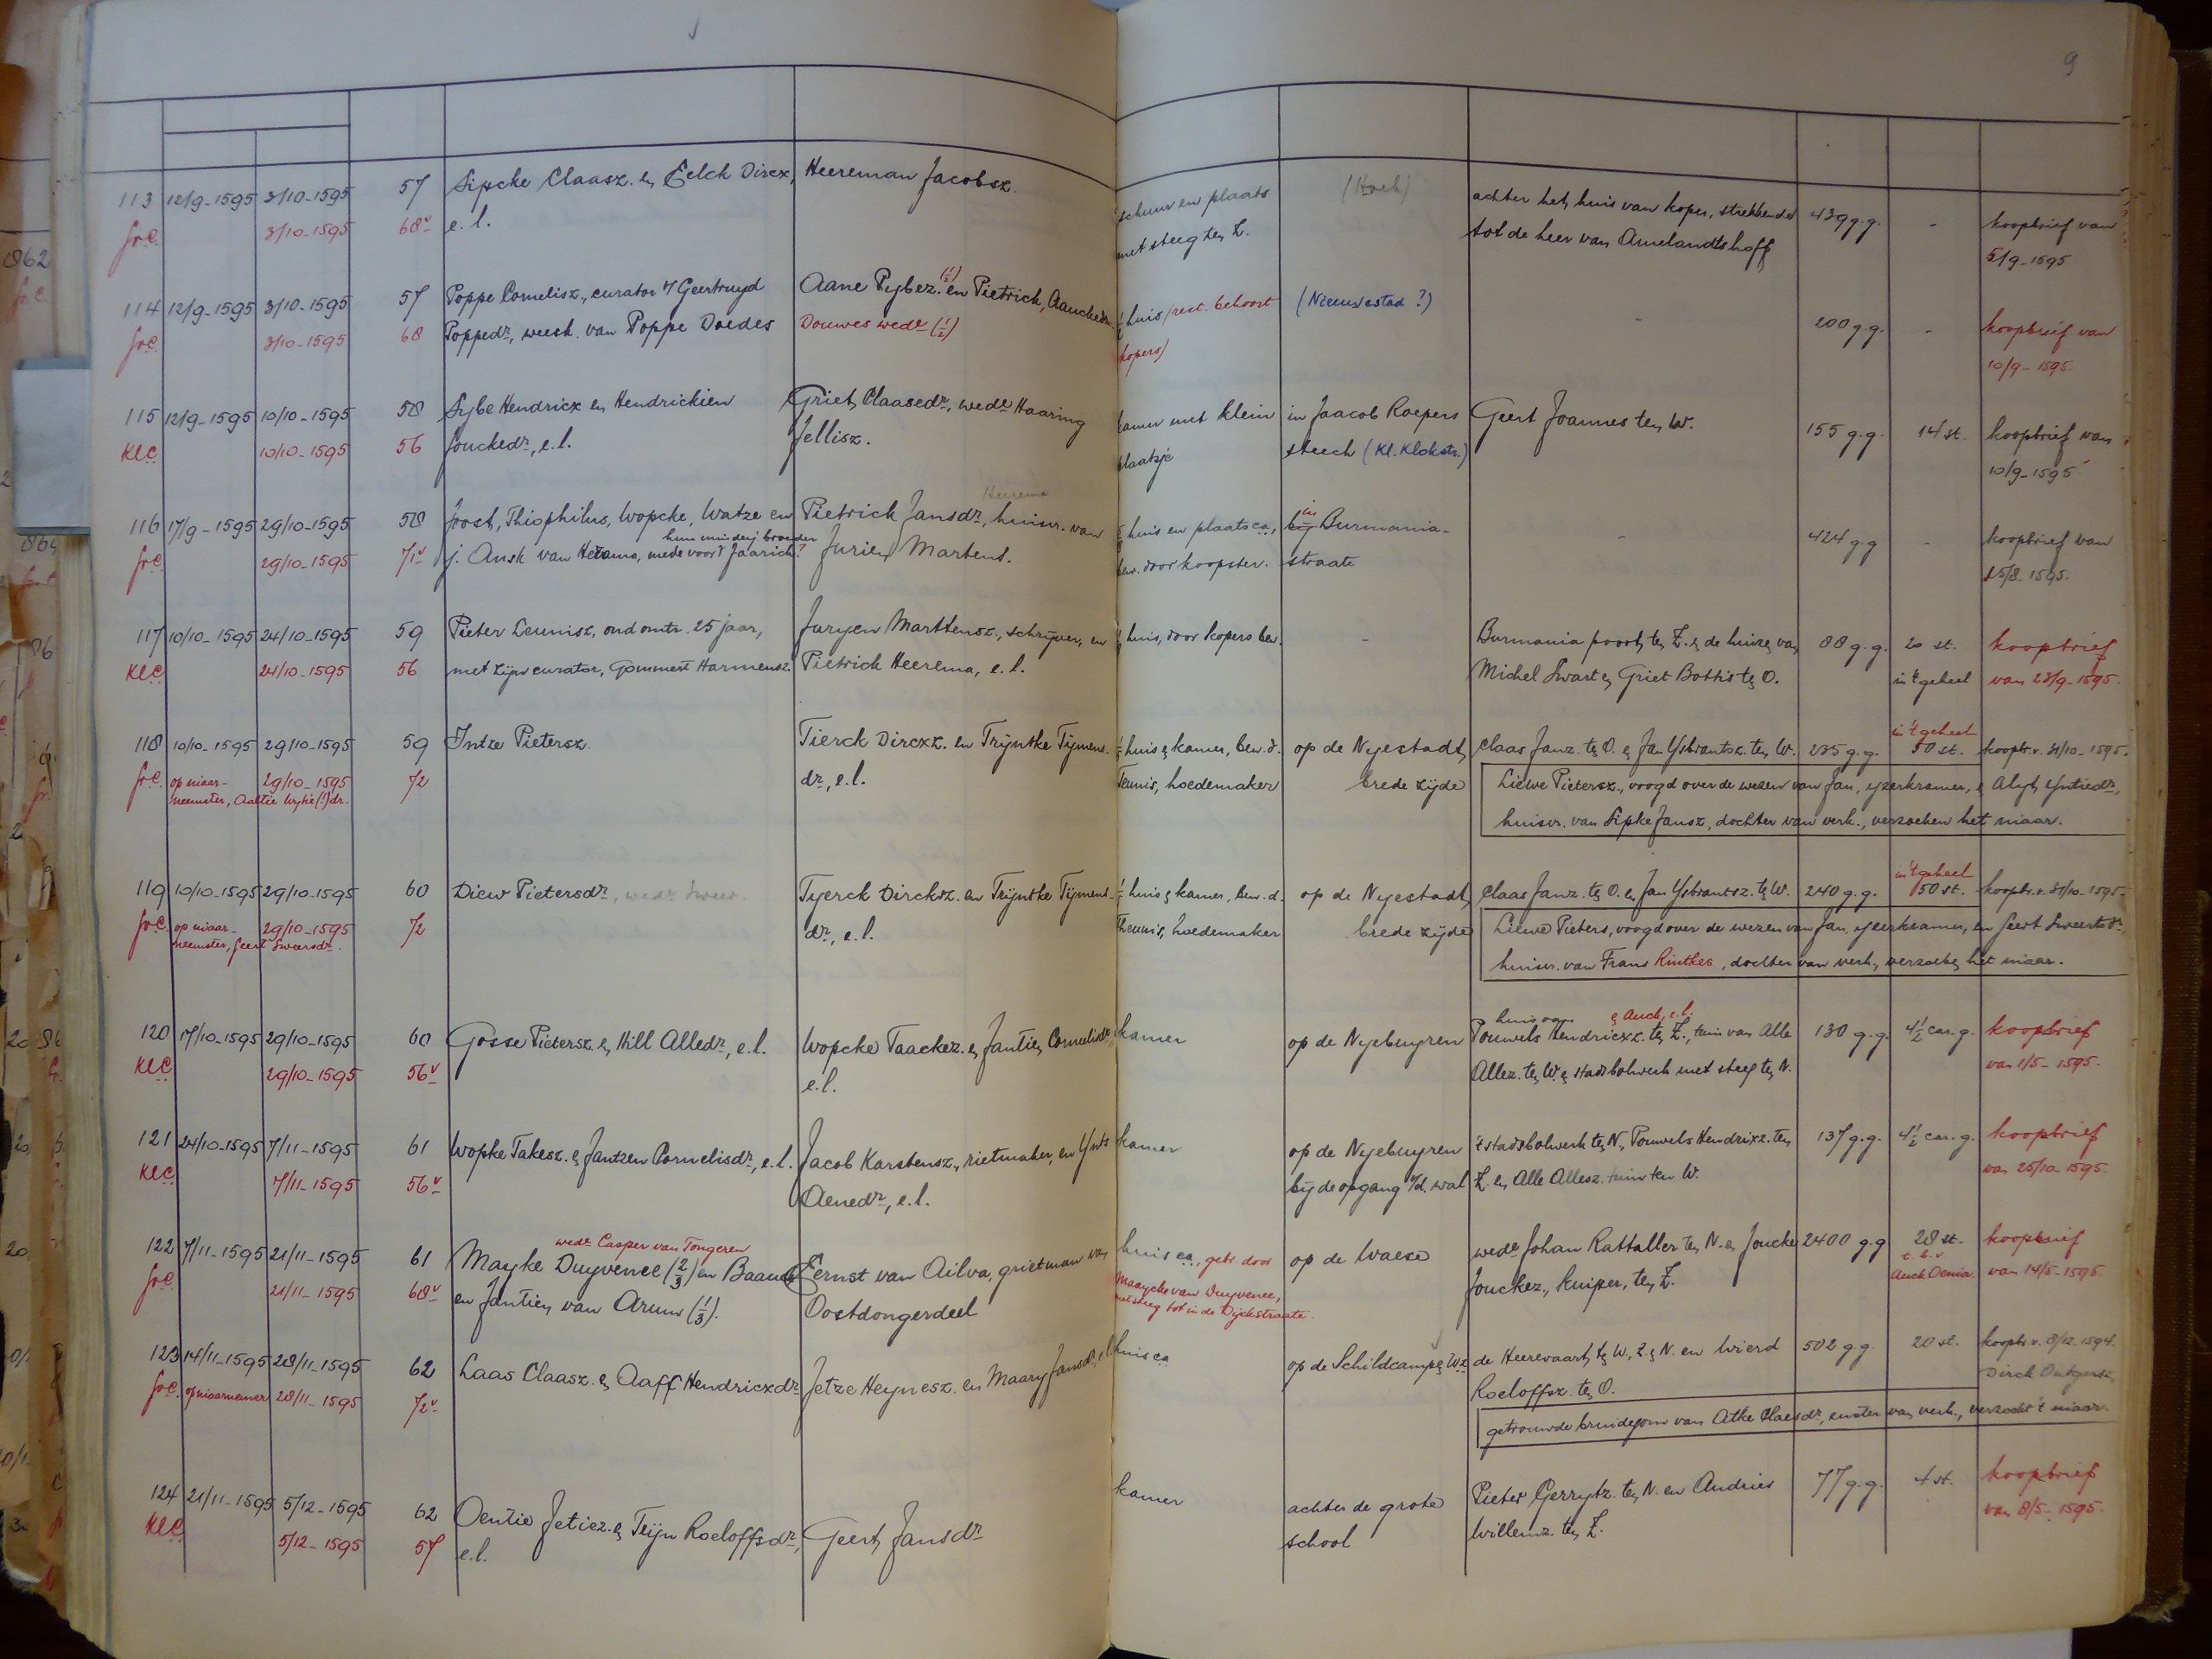 9
113 12/9-1595 3/10-1595 57 Sipcke Claasz. en Eelck Dircx, Heereman Jacobsz. schuur en plaats (Hoek) achter het huis van koper, strekkende 439 g.g. - koopbrief van
3/10-1595 68v e.l. met steeg ten Z. tot de heer van Amelandtshoff 5/9-1595
114 12/9-1595 3/10-1595 57 Poppe Cornelisz., curator o/ Geertruyd Aane Pybez. (½) en Pietrick, Aauckedr. ½ huis (rest. behoort (Nieuwestad ?) - 200 g.g. - koopbrief van
3/10-1595 68 Poppedr, weesk. van Poppe Doedes Douwes wede (½) kopers) 10/9-1595.
115 12/9-1595 10/10-1595 58 Sybe Hendricx en Hendrickien Griet Claasedr, wede Haaring kamer met klein in Jaacob Roepers Geert Joannes ten W. 155 g.g. 14 st. koopbrief van
KLC 10/10-1595 56 Jouckedr, e.l. Jellisz. plaatsje steech (Kl. Klokstr.) 10/9-1595
Heerema
116 17/9-1595 29/10-1595 58 Joost, Thiophilus, Wopcke, Watze en Pietrick Jansdr, huisvr. van huis en plaats c.a., bij in Burmania- - 424 g.g - koopbrief van
hun minderj. broeder
29/10-1595 71v j. Ansk van Hettama, mede voor Jaarich? Jurien Martens. bew. door koopster. straate 15/8-1595.
117 10/10-1595 24/10-1595 59 Pieter Leunisz, oud omtr. 25 jaar, Juryen Marttensz., schrijver, en huis, door kopers bew. - Burmania poort ten Z. en de huize van 88 g.g. 20 st. koopbrief
KLC 24/10-1595 56 met zijn curator, Gommert Harmensz. Pietrick Heerema, e.l. Michel Swart en Griet Bottis ten O. in 't geheel van 23/9-1595.
118 10/10-1595 29/10-1595 59 Intze Pietersz. Tierck Dircxz. en Tryntke Tymens- huis & kamer, bew. d. op de Nyestadt, Claas Janz. ten O. en Jan Ysbrantsz. ten W. 235 g.g. in 't geheel 50 st. koopbr. v. 31/10-1595.
op niaar- 29/10-1595 72 dr, e.l. Teunis, hoedemaker brede zijde Liewe Pietersz., voogd over de wezen van Jan, yzerkramer, & Alyt Yntiedr,
neemster, Aaltie (!)dr. huisvr. van Sipke Jansz, dochter van verk., verzoeken het niaar.
119 10/10-1595 29/10-1595 60 Diew Pietersdr, wede Sweer. Tyerck Dircksz. en Tryntke Tijmens- huis & kamer, bew. d. op de Nyestadt, Claas Janz. ten O. en Jan Ysbrantsz. ten W. 240 g.g. in 't geheel 50 st. koopbr. v. 31/10-1595.
op niaar- 29/10-1595 72 dr, e.l. Theunis, hoedemaker brede zyde Liewe Pieters, voogd over de wezen van Jan, yzerkramer, en Geert Sweertsdr.,
neemster, Geert Sweersdr. huisvr. van Frans Rintkes, dochter van verk., verzoeken het niaar.
120 17/10-1595 29/10-1595 60 Gosse Pietersz. en Hill Alledr, e.l. Wopcke Taackez. en Jantien Cornelisdr, kamer op de Nyebuyren Pouwels Hendricxz. & Auck, e.l. ten Z., tuin van Alle 130 g.g. 4½ car. g. koopbrief
KLC 29/10-1595 56v e.l. Allez. ten W. & stadsbolwerk met steeg ten N. van 1/5-1595.
121 24/10-1595 7/11-1595 61 Wopke Takesz. & Jantzen Cornelisdr, e.l. Jacob Karstensz., rietmaker, en Ynts kamer op de Nyebuyren 't stadsbolwerk ten N., Pouwels Hendrixz. ten 137 g.g. 4½ car. g. koopbrief
KLC 7/11-1595 56v Aenedr, e.l. bij de opgang v/d. wal Z. en Alle Allesz. tuin ten W. van 25/10-1595.
wede Casper van Tongeren
122 7/11-1595 21/11-1595 61 Mayke Duyvenee (2/3) en Baauck Eernst van Ailva, grietman van huis c.a., gebr. door op de Waese wede Johan Rattaller ten N. en Joucke 2400 g.g 28 st. koopbrief
21/11-1595 68v en Jantien van Arum (1/3). Oostdongerdeel Maaycke van Duyvenee, Jouckez., kuiper, ten Z. t.b.v. Auck Oenia van 14/5-1595.
met steeg tot in de Dijckstraate.
123 14/11-1595 28/11-1595 62 Laas Claasz. en Aaff Hendricxdr Jetze Heynesz. en Maary Jansdr, e.l. huis ca op de Schildcamp de Heerevaart ten W., Z. & N. en Wierd 502 g.g. 20 st. koopbr. v. 8/12-1594.
op niaarnemer 28/11-1595 72v Roeloffsz. ten O. Dirck Outgersz,
getrouwde bruidegom van Atke Claesdr, zuster van verk., verzocht 't niaar.
124 21/11-1595 5/12-1595 62 Oentie Jetiez. & Trijn Roeloffsdr, Geert Jansdr kamer achter de grote Pieter Gerrytz. ten N. en Andries 77 g.g. 4 st. koopbrief
KLC 5/12-1595 57 e.l. school Willemz. ten Z. van 8/5-1595.